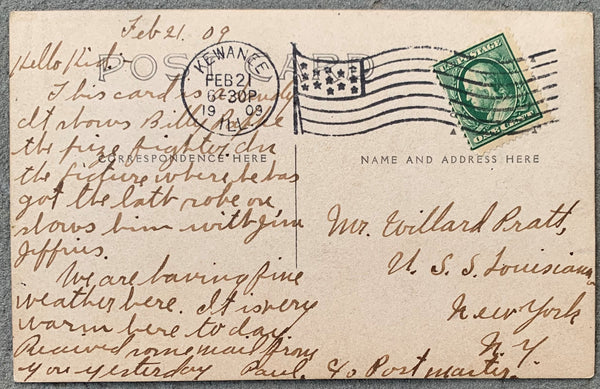 Feb 21. 09
POST CARD
Hello Kid:-
This card is a dandy
It shows Billy
the prize fighter. In
the picture where he has
got the bath robe on
shows him with Jim
Jeffries.
We are having fine
weather here. It is very
warm here to day
Received some mail from
you yesterday Paul.
KEWANEE
FEB 21
6-30P
1909
ILL.
U.S. POSTAGE
ONE CENT
CORRESPONDENCE HERE
NAME AND ADDRESS HERE
Mr. Willard Pratt,
U. S. S. Louisiana
New York
N. Y.
c/o Postmaster